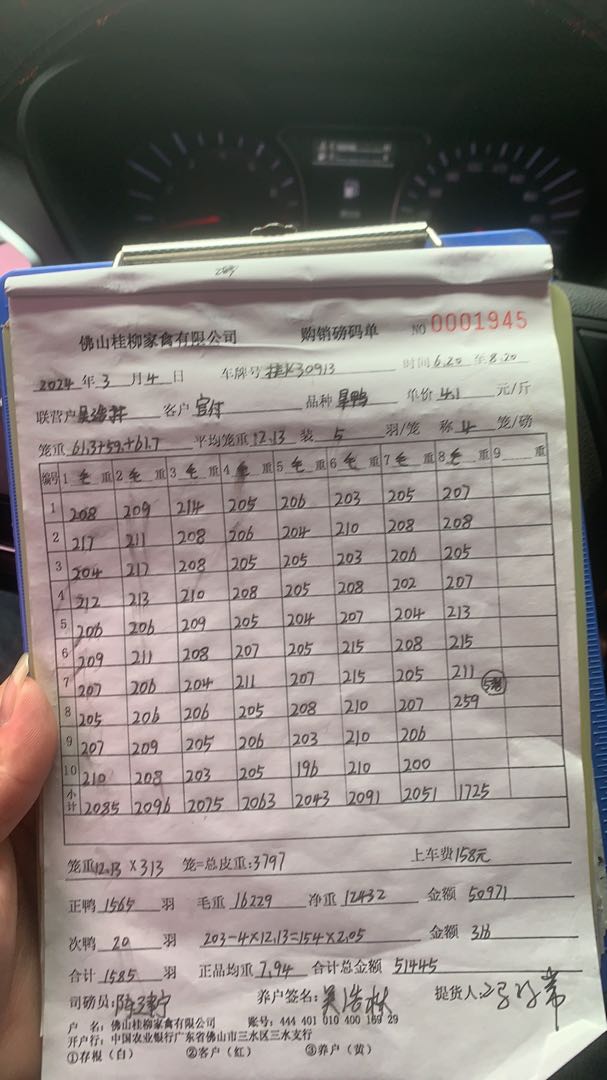 佛山桂柳家禽有限公司 购销磅码单 NO 0001945
2024 年 3 月 4 日 车牌号 30913 时间 6.20 至 8.20
联营户 客户 品种 单价 4.1 元/斤
笼重 61.3+59.+61.7 平均笼重 12.13 装 5 羽/笼 称 4 笼/磅
编号 1 毛 重 2 毛 重 3 毛 重 4 毛 重 5 毛 重 6 毛 重 7 毛 重 8 毛 重 9 重
1 208 209 214 205 206 203 205 207
2 217 211 208 206 204 210 208 208
3 204 217 208 205 205 203 206 205
4 212 213 210 208 205 208 202 207
5 206 206 209 205 204 207 204 213
6 209 211 208 207 205 215 208 215
7 207 206 204 211 207 215 205 211
8 205 206 206 205 208 210 207 259
9 207 209 205 206 203 210 206
10 210 208 203 205 196 210 200
小计 2085 2096 2075 2063 2043 2091 2051 1725
笼重 12.13 × 313 笼=总皮重:3797 上车费 158元
正鸭 1565 羽 毛重 16229 净重 12432 金额 50971
次鸭 20 羽 203-4×12.13=154×2.05 金额 316
合计 1585 羽 正品均重 7.94 合计总金额 51445
司磅员: 养户签名: 吴浩林 提货人:
户 名: 佛山桂柳家禽有限公司 账号: 444 401 010 400 169 29
开户行: 中国农业银行广东省佛山市三水区三水支行
①存根(白) ②客户(红) ③养户(黄)